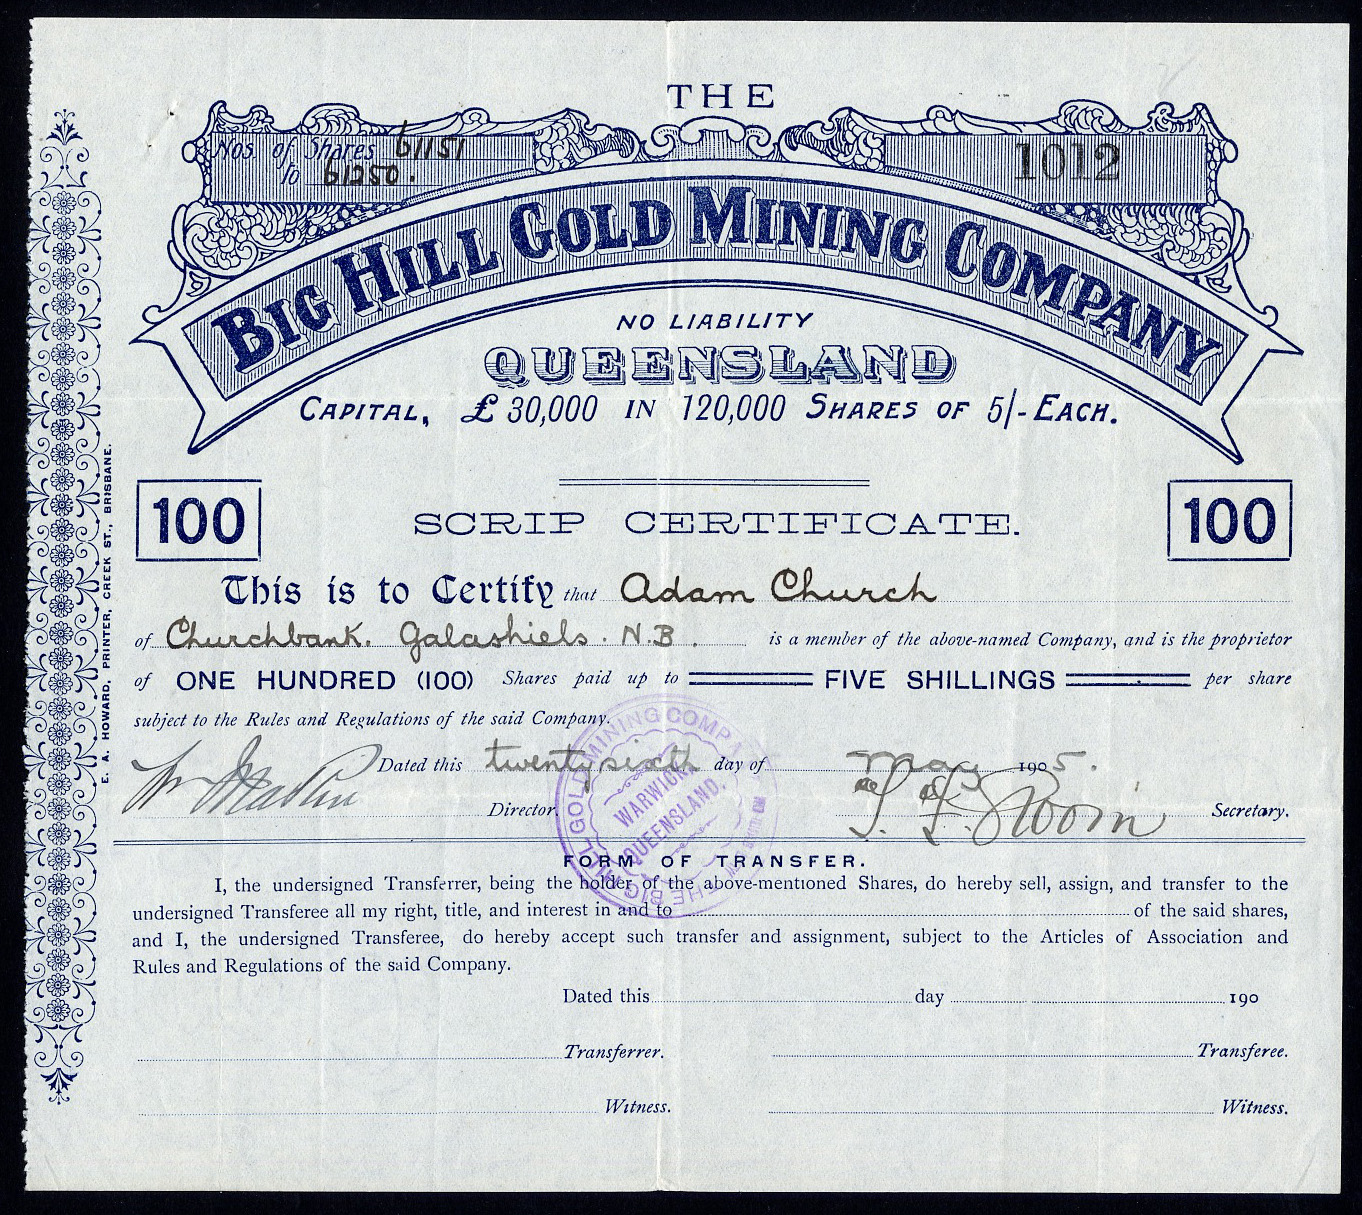 THE
Nos. of Shares 61151
to 61250.
1012
BIG HILL GOLD MINING COMPANY
NO LIABILITY
QUEENSLAND
CAPITAL, £30,000 IN 120,000 SHARES OF 5/- EACH.
100
SCRIP CERTIFICATE.
100
This is to Certify that Adam Church
of Churchbank. Galashiels. N.B. is a member of the above-named Company, and is the proprietor
of ONE HUNDRED (100) Shares paid up to FIVE SHILLINGS per share
subject to the Rules and Regulations of the said Company.
Dated this twenty sixth day of May 1905.
Director.
Secretary.
THE BIG HILL GOLD MINING COMPANY
WARWICK,
QUEENSLAND.
FORM OF TRANSFER.
I, the undersigned Transferrer, being the holder of the above-mentioned Shares, do hereby sell, assign, and transfer to the
undersigned Transferee all my right, title, and interest in and to of the said shares,
and I, the undersigned Transferee, do hereby accept such transfer and assignment, subject to the Articles of Association and
Rules and Regulations of the said Company.
Dated this day 190
Transferrer. Transferee.
Witness. Witness.
E. A. HOWARD, PRINTER, CREEK ST., BRISBANE.